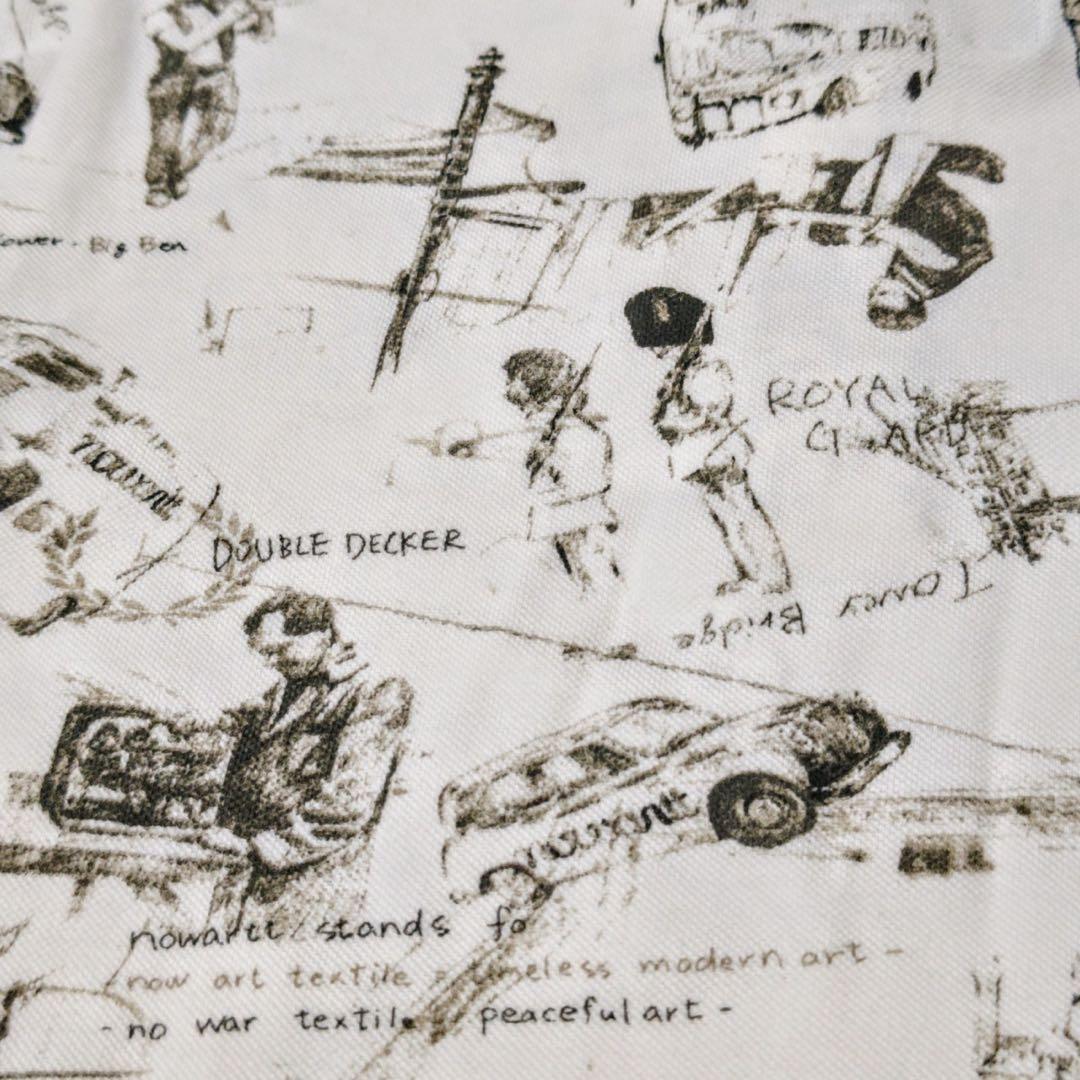 ower - Big Ben
ROYAL
GUARD
nowartt
DOUBLE DECKER
Tower Bridge
nowartt
nowartt stands fo
now art textile = timeless modern art -
- no war textile peaceful art -